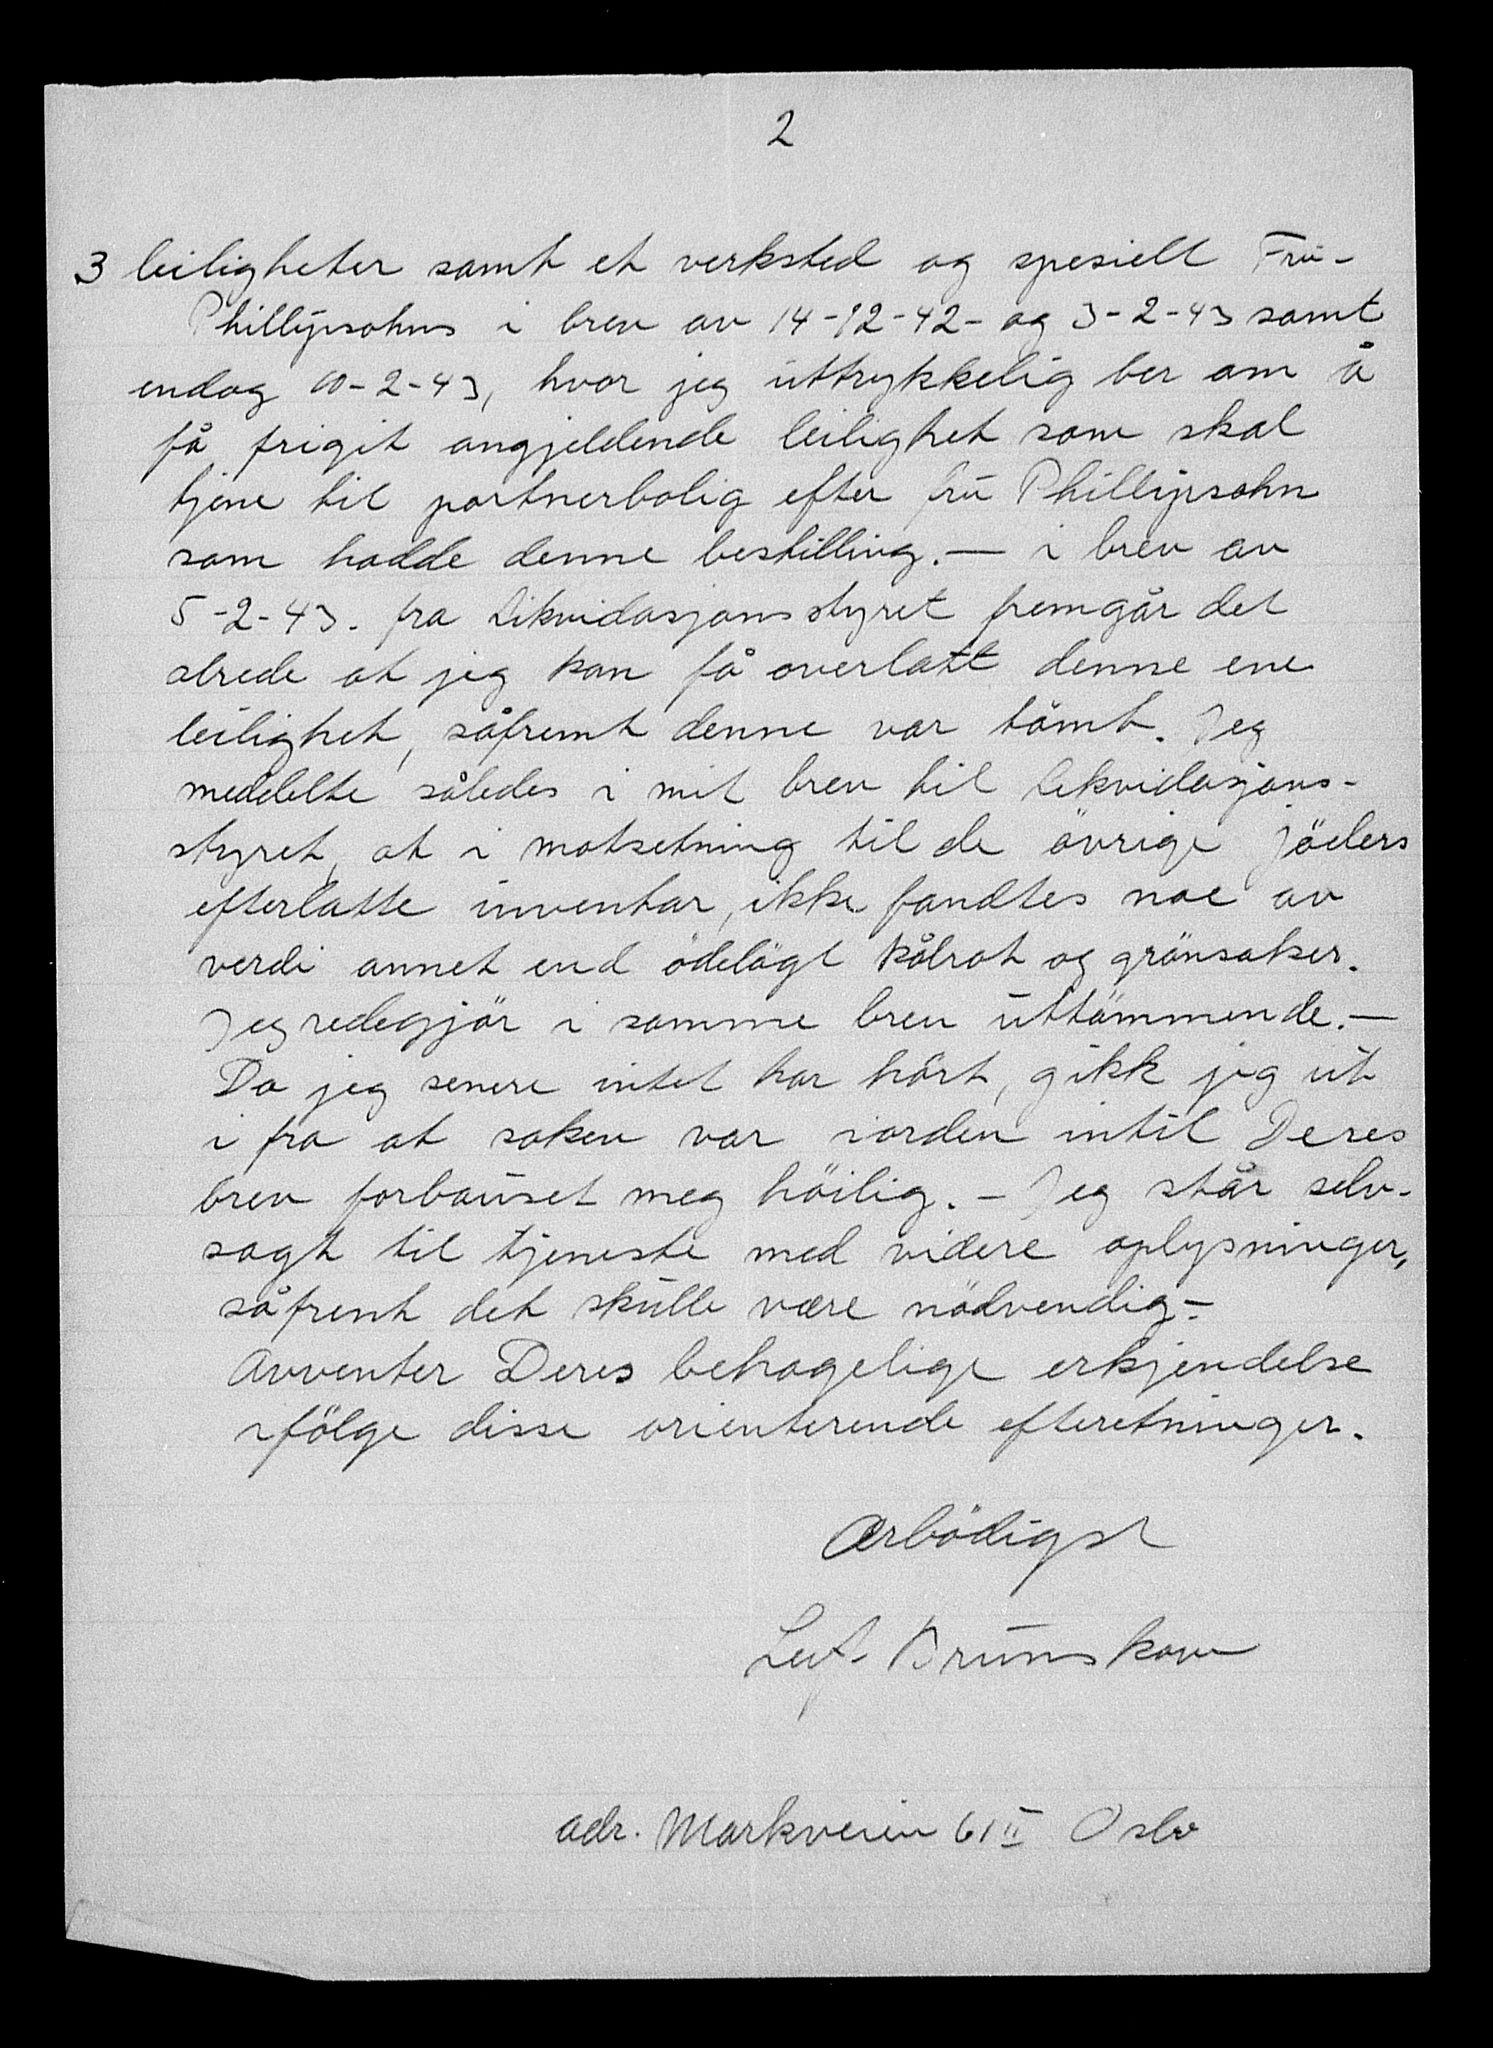 2
3 leiligheter samt et verksted og spesielt Fru-
Phillipsohns i brev av 14-12-42- og 3-2-43 samt
endog 10-2-43, hvor jeg uttrykkelig ber om å
få frigit angjeldende leilighet som skal
tjene til portnerbolig efter fru Phillipsohn
som hadde denne bestilling. — i brev av
5-2-43. fra Likvidasjonsstyret fremgår det
alrede at jeg kan få overlatt denne ene
leilighet, såfremt denne var tömt. Jeg
meddelte således i mit brev til Likvidasjons-
styret, at i motsetning til de övrige jöders
efterlatte inventar, ikke fandtes noe av
verdi annet end ödelögt kålrot og grönsaker.
Jeg redegjör i samme brev uttömmende. —
Da jeg senere intet har hört, gikk jeg ut
i fra at saken var iorden intil Deres
brev forbauset meg höilig. — Jeg står selv-
sagt til tjeneste med videre oplysninger,
såfremt det skulle være nödvendig —
Avventer Deres behagelige erkjendelse
ifölge disse orienterende efteretninger.
Ærbödigst
Leif Brunskow
adr. Markveien 61 II Oslo